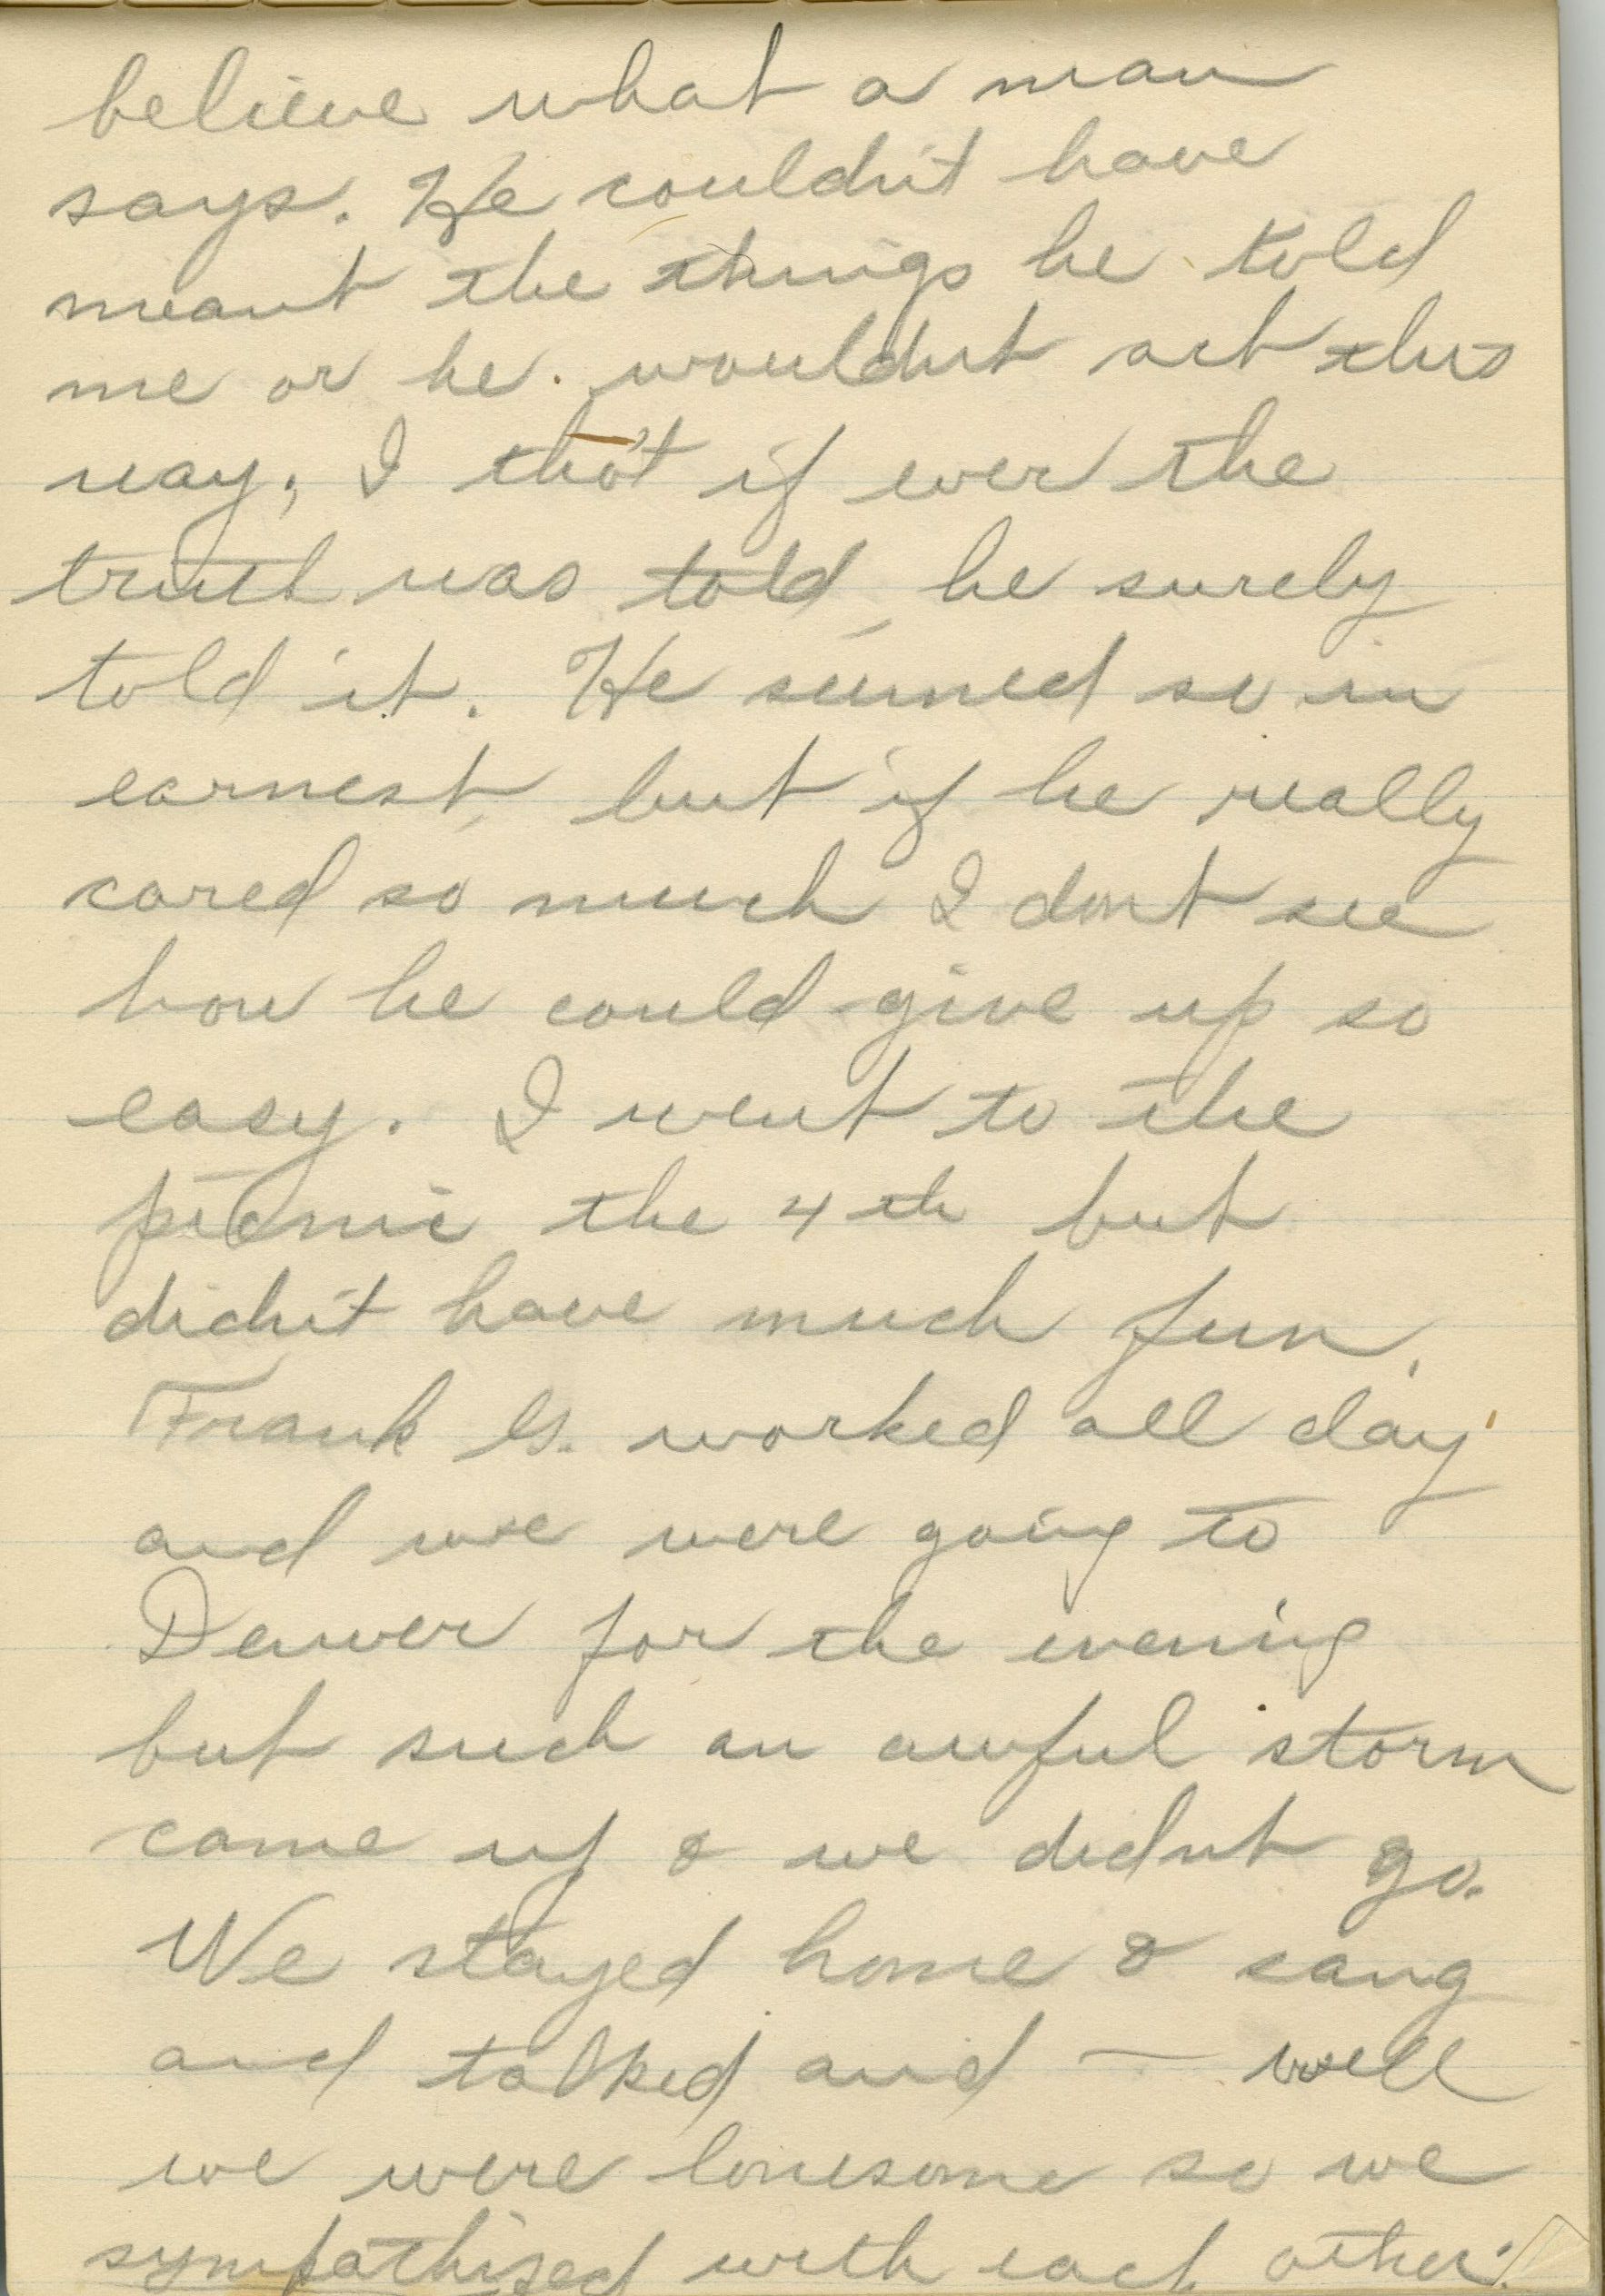 believe what a man
says. He couldn't have
meant the things he told
me or he wouldnt act this
way; I tho't if ever the
truth was told, he surely
told it. He seemed so in
earnest, but if he really
cared so much I dont see
how he could give up so
easy. I went to the
picnic the 4th but
didn't have much fun.
Frank G. worked all day
and we were going to
Denver for the evening
but such an awful storm
came up & we didnt go.
We stayed home & sang
and talked and — well
we were lonesome so we
sympathized with each other.